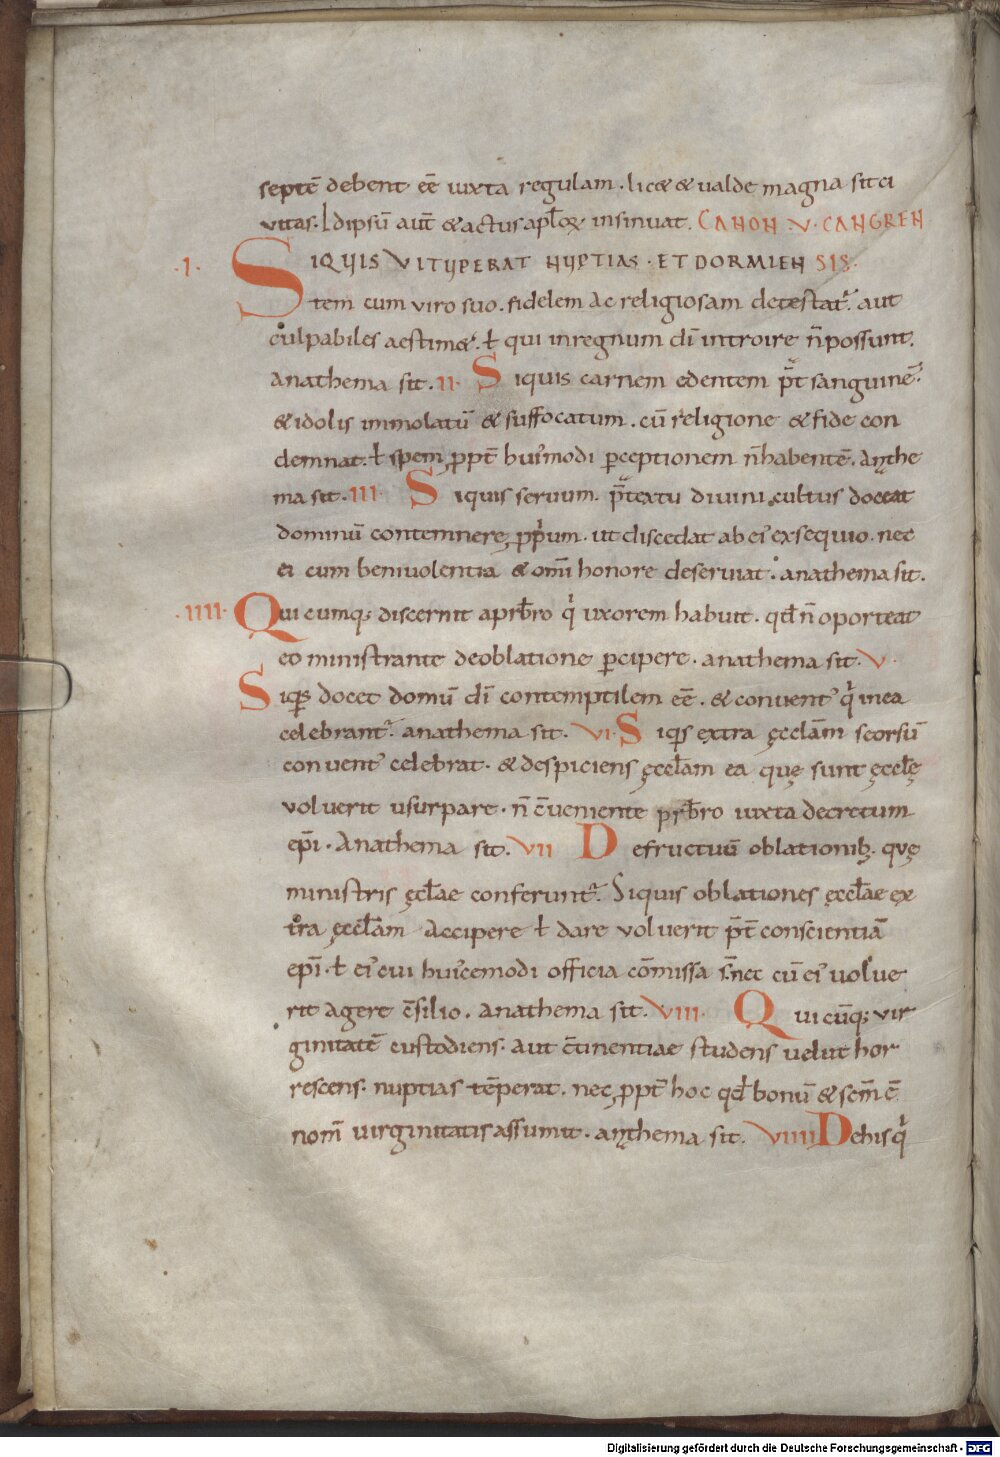 septē debent eē iuxta regulam · licæ & ualde magna sit ci
vitas · Idipsū aut̄ & actus apl̄oꝝ insinuat. CANON · V · CANGREN
· I · SIQUIS VITUPERAT NUPTIAS · ET DORMIEN SIS ·
tem cum viro suo . fidelem ac religiosam detestat᷑ . aut
culpabiles aestimæ . ł qui in regnum dī introire n̄ possunt .
anathema sit . II · Siquis carnem edentem p̄t sanguinē .
& idolis immolatū & suffocatum . cū religione & fide con
demnat . ł spem ꝓpt̄ huiꝰmodi ꝑceptionem n̄ habentē . anathe
ma sit . III · Siquis seruum . p̄textu diuini cultus doceat
dominū contemnere ꝓprium . ut discedat ab eiꝰ exsequio . nec
ei cum beniuolentia & om̄i honore deseruiat . anathema sit .
· IIII · Quicumq; discernit a prb̄ro qͥ uxorem habuit . qd̄ n̄ oporteat
eo ministrante de oblatione ꝑcipere . anathema sit . V ·
Siqͥs docet domū dī contemptilem eē . & conuentꝰ qͥ in ea
celebrant᷑ . anathema sit . VI · Siqͥs extra ęcclām seorsū
conuentꝰ celebrat . & despiciens ęccl̄am ea quę sunt ęccl̄ę
voluerit usurpare . n̄ c̄ueniente prb̄ro iuxta decretum
ep̄i . Anathema sit . VII De fructuū oblationib; . quę
ministris ęccl̄ae conferunt᷑ . Siquis oblationes ęccl̄ae ex
tra ęccl̄am Accipere ł dare voluerit p̄t̄ conscientiā
ep̄i . ł eiꝰ cui huiꝰcemodi officia cōmissa s̄ . nec cū eiꝰ uolue
rit agere c̄silio . anathema sit . VIII · Quicūq; vir
ginitatē custodiens . aut c̄tinentiae studens uelut hor
rescens . nuptias tēperat . nec ꝓpt̄ hoc qd̄ bonū & sc̄m ē
nom̄ uirginitatis assumit . anathema sit . VIIII De his qͥ
Digitalisierung gefördert durch die Deutsche Forschungsgemeinschaft - DFG